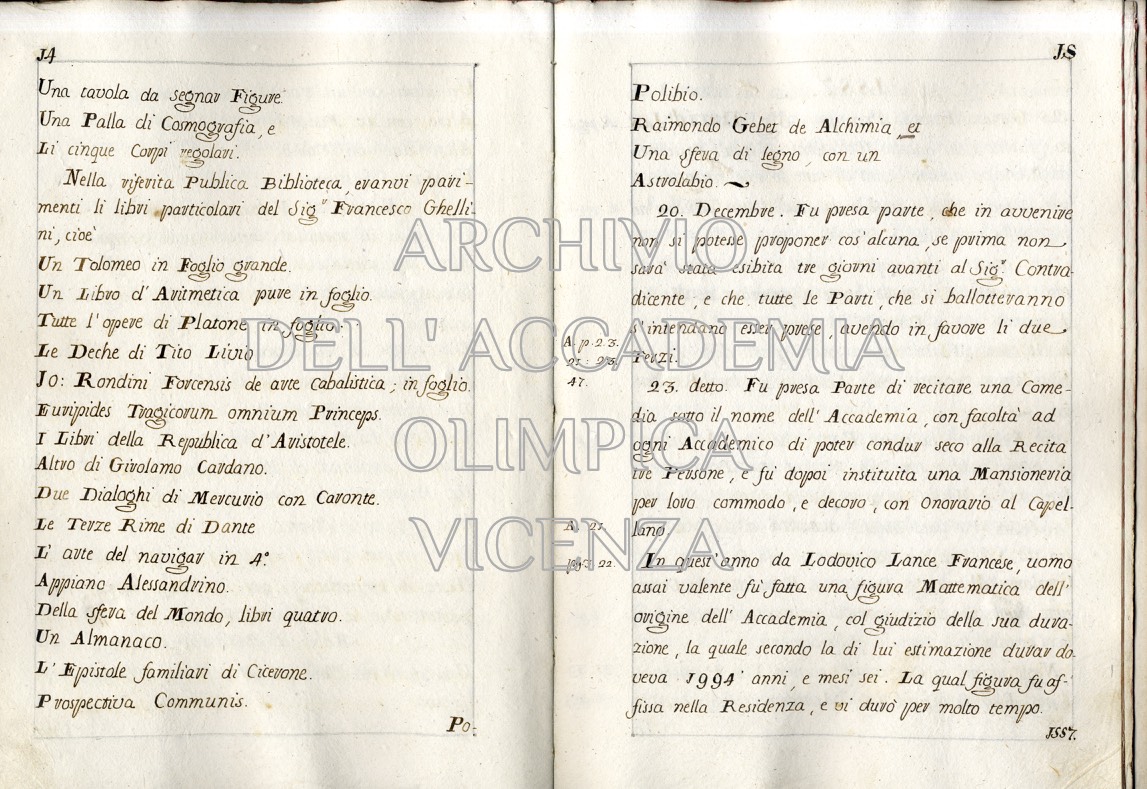 14
Una tavola da segnar Figure.
Una Palla di Cosmografia, e
Li cinque Corpi regolari.
Nella riferita Publica Biblioteca, eranvi pari-
menti li libri particolari del Sig.r Francesco Ghelli-
ni, cioe'
Un Tolomeo in Foglio grande.
Un Libro d' Aritmetica pure in foglio.
Tutte l' opere di Platone in foglio.
Le Deche di Tito Livio
Jo: Rondini Forcensis de arte cabalistica; in foglio.
Euripides Tragicorum omnium Princeps.
I Libri della Republica d' Aristotele.
Altro di Girolamo Cardano.
Due Dialoghi di Mercurio con Caronte.
Le Terze Rime di Dante
L' arte del navigar in 4.º
Appiano Alessandrino.
Della sfera del Mondo, libri quatro.
Un Almanaco.
L' Epistole familiari di Cicerone.
Prospectiva Communis.
Po:
15
Polibio.
Raimondo Geber de Alchimia, et
Una sfera di legno, con un
Astrolabio.
20. Decembre. Fu presa parte, che in avvenire
non si potese proponer cos' alcuna, se prima non
sara' stata esibita tre giorni avanti al Sig.r Contra-
dicente, e che, tutte le Parti, che si ballotteranno
s' intendano esser prese, avendo in favore li due
Terzi.
A. p. 23.
21: 23.
47.
23. detto. Fu presa Parte di recitare una Come-
dia sotto il nome dell' Accademia, con facolta' ad
ogni Accademico di poter condur seco alla Recita
tre Persone, e fu' doppoi instituita una Mansioneria
per loro commodo, e decoro, con Onorario al Capel-
lano.
A. 21.
pag. 22.
In quest' anno da Lodovico Lance Francese, uomo
assai valente fu' fatta una figura Mattematica dell'
origine dell' Accademia, col giudizio della sua dura-
zione, la quale secondo la di lui estimazione durar do-
veva 1994 anni, e mesi sei. La qual figura fu af-
fissa nella Residenza, e vi duro' per molto tempo.
1557.
ARCHIVIO
DELL'ACCADEMIA
OLIMPICA
VICENZA